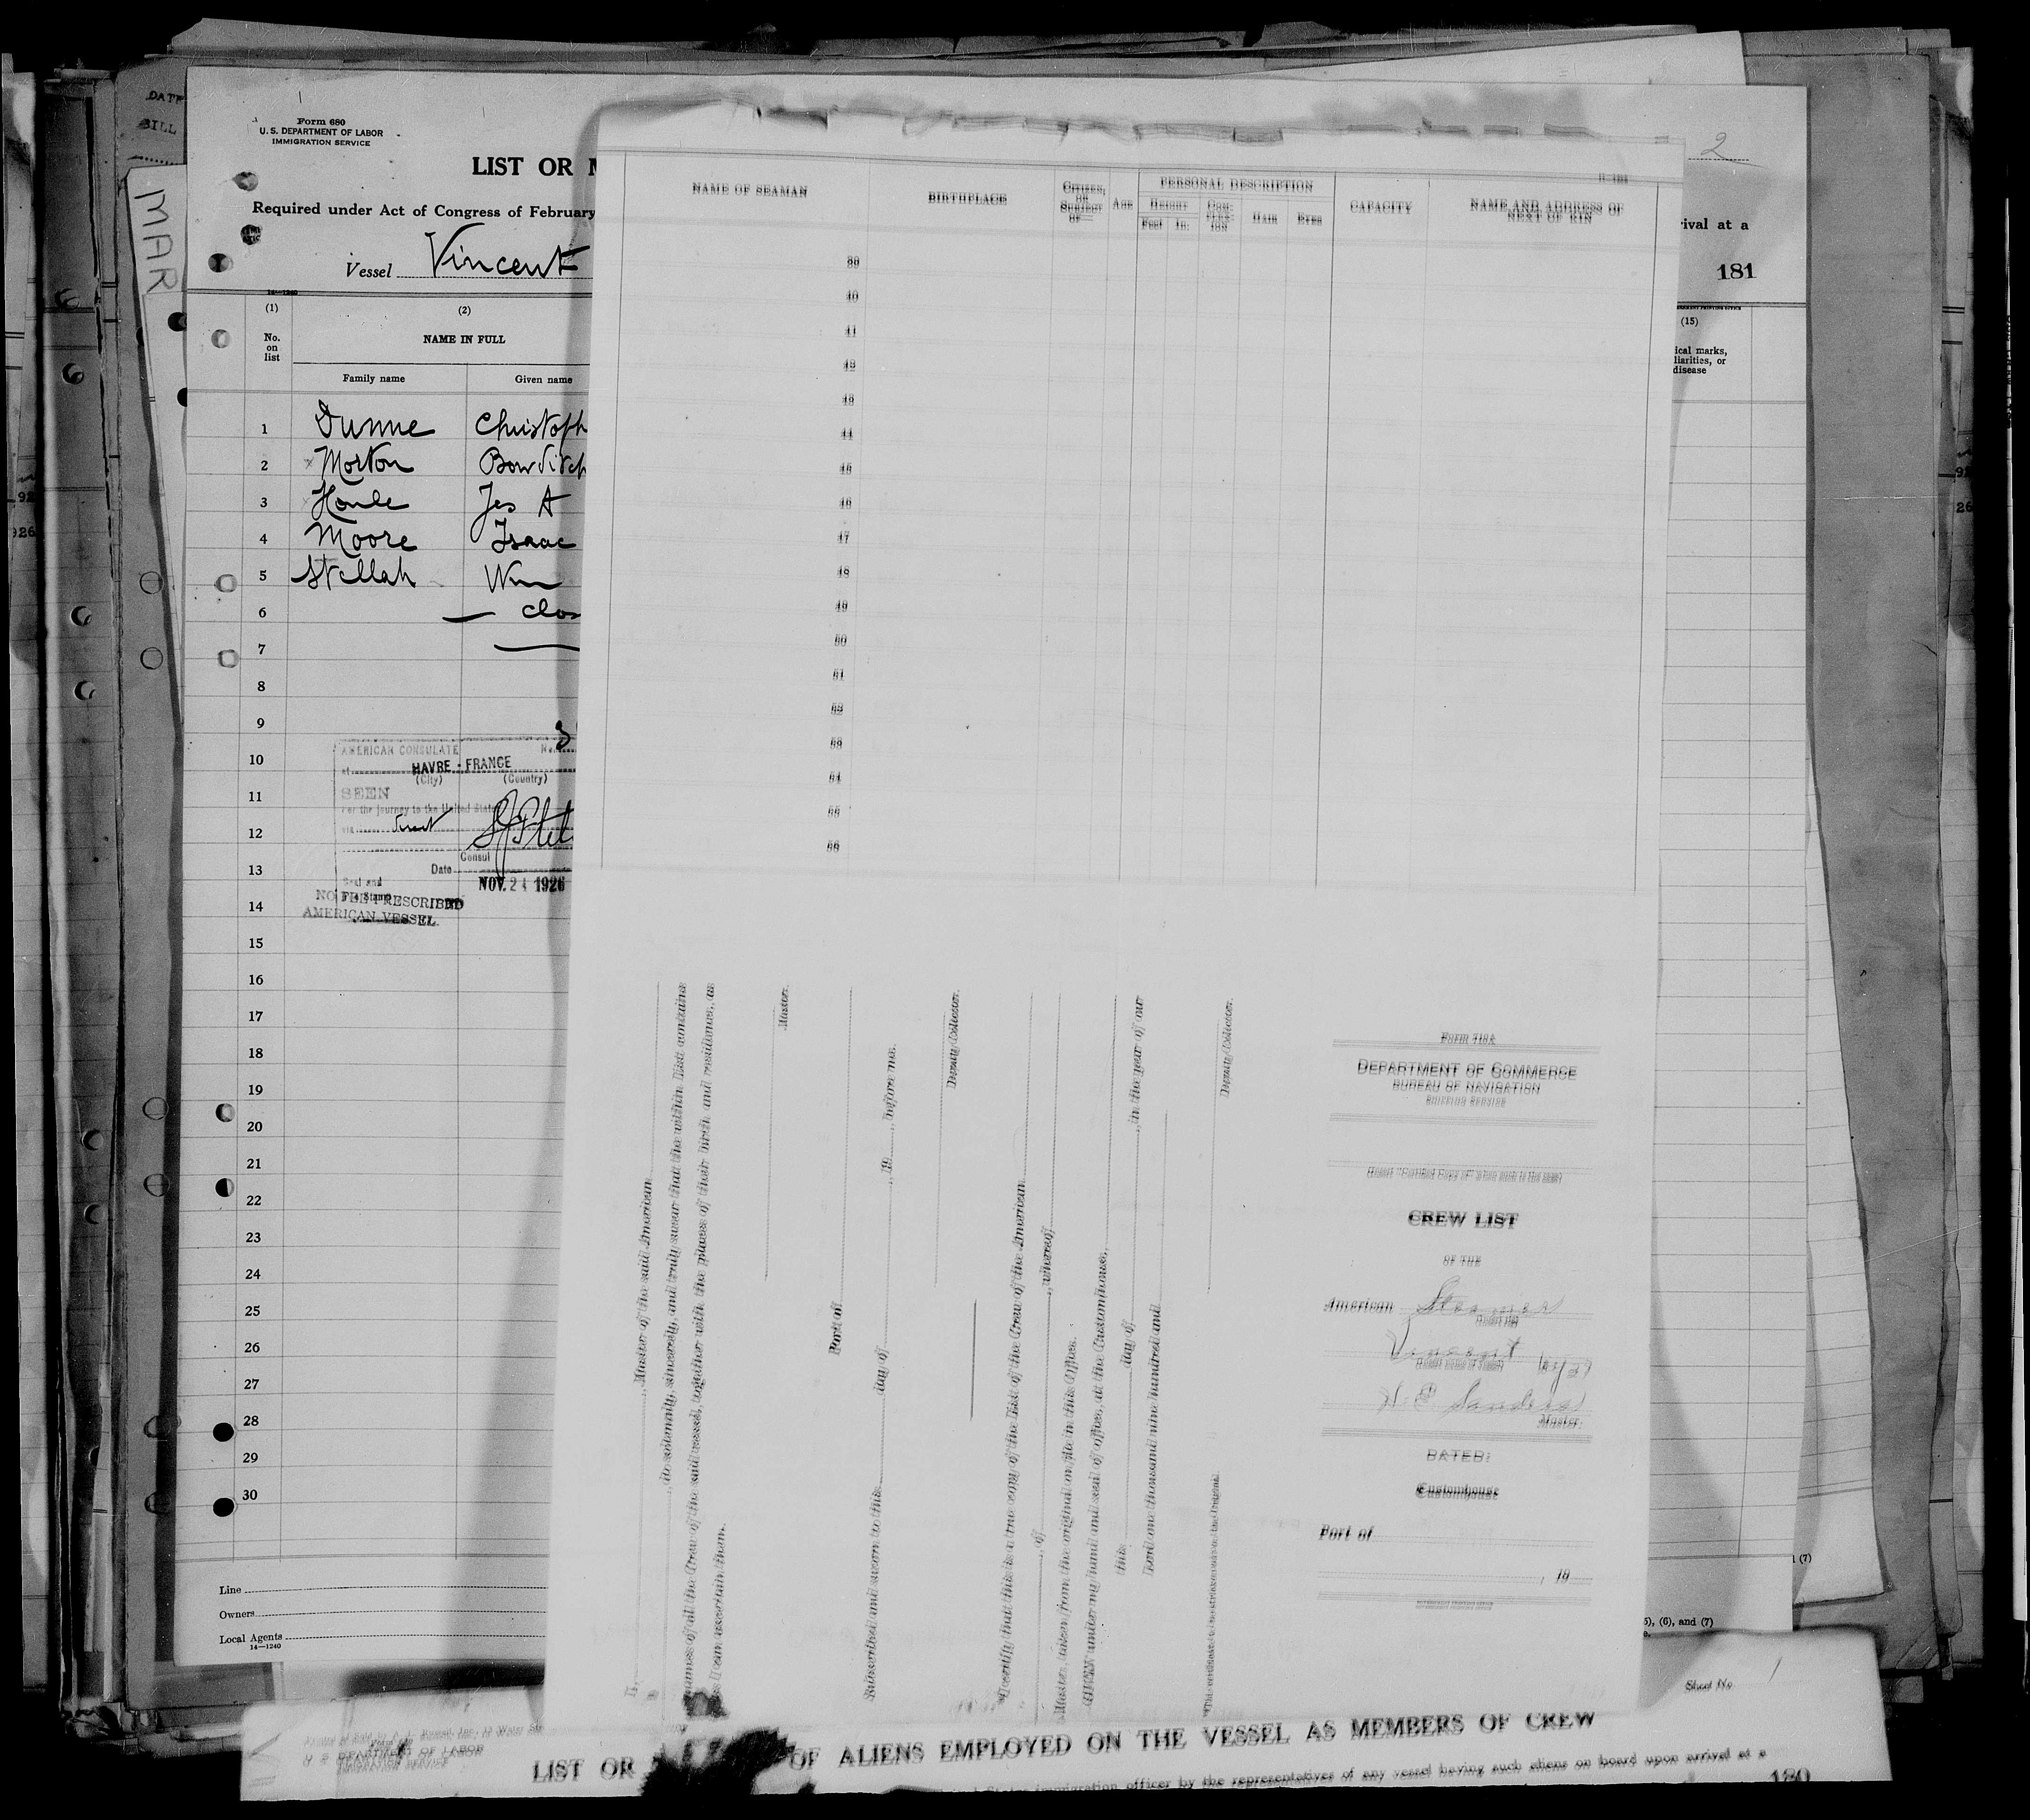 DATE
BILL
MAR
Form 680
U. S. DEPARTMENT OF LABOR
IMMIGRATION SERVICE
LIST OR
Required under Act of Congress of February
Vessel Vincent
14—1240
(1)
(2)
No.
on
list
NAME IN FULL
Family name
Given name
1 Dunne Christoph
2 Morton Bowditch
3 Houle Jes A
4 Moore Isaac
5 Wm
6 — Clos
7
8
9
10
11
12
13
14
15
16
17
18
19
20
21
22
23
24
25
26
27
28
29
30
AMERICAN CONSULATE
No.
at HAVRE - FRANCE
(City) (Country)
SEEN
For the journey to the United States
via
Consul
Date
NOV. 24 1926
Seal and
Fee Stamp
NO FEE PRESCRIBED
AMERICAN VESSEL.
Line
Owners
Local Agents
14—1240
2
rival at a
181
(15)
ical marks,
liarities, or
disease
(7)
5), (6), and (7)
NAME OF SEAMAN
BIRTHPLACE
CITIZEN,
OR
SUBJECT
OF—
AGE
PERSONAL DESCRIPTION
HEIGHT
Feet In.
COM-
PLEX-
ION
HAIR
EYES
CAPACITY
NAME AND ADDRESS OF
NEXT OF KIN
39
40
41
42
43
44
45
46
47
48
49
50
51
52
53
54
55
56
I,
, Master of the said American
, do solemnly, sincerely, and truly swear that the within List contains
names of all the Crew of the said vessel, together with the places of their birth and residence, as
as I can ascertain them.
Master.
Port of
Subscribed and sworn to this day of , 19 , before me.
Deputy Collector.
I certify that this is a true copy of the List of the Crew of the American
, of , whereof
Master, taken from the original on file in this Office.
GIVEN under my hand and seal of office, at the Customhouse,
this day of , in the year of our
Lord one thousand nine hundred and
Deputy Collector.
Form 710A
DEPARTMENT OF COMMERCE
BUREAU OF NAVIGATION
SHIPPING SERVICE
(Insert "Certified Copy of" when such is the case)
CREW LIST
OF THE
American Steamer
(Insert rig)
Vincent
(Insert name of vessel)
H. E. Sanders
Master.
DATED:
Customhouse
Port of
, 19
GOVERNMENT PRINTING OFFICE
Sheet No. 1
U. S. DEPARTMENT OF LABOR
IMMIGRATION SERVICE
LIST OR OF ALIENS EMPLOYED ON THE VESSEL AS MEMBERS OF CREW
States immigration officer by the representatives of any vessel having such aliens on board upon arrival at a
180